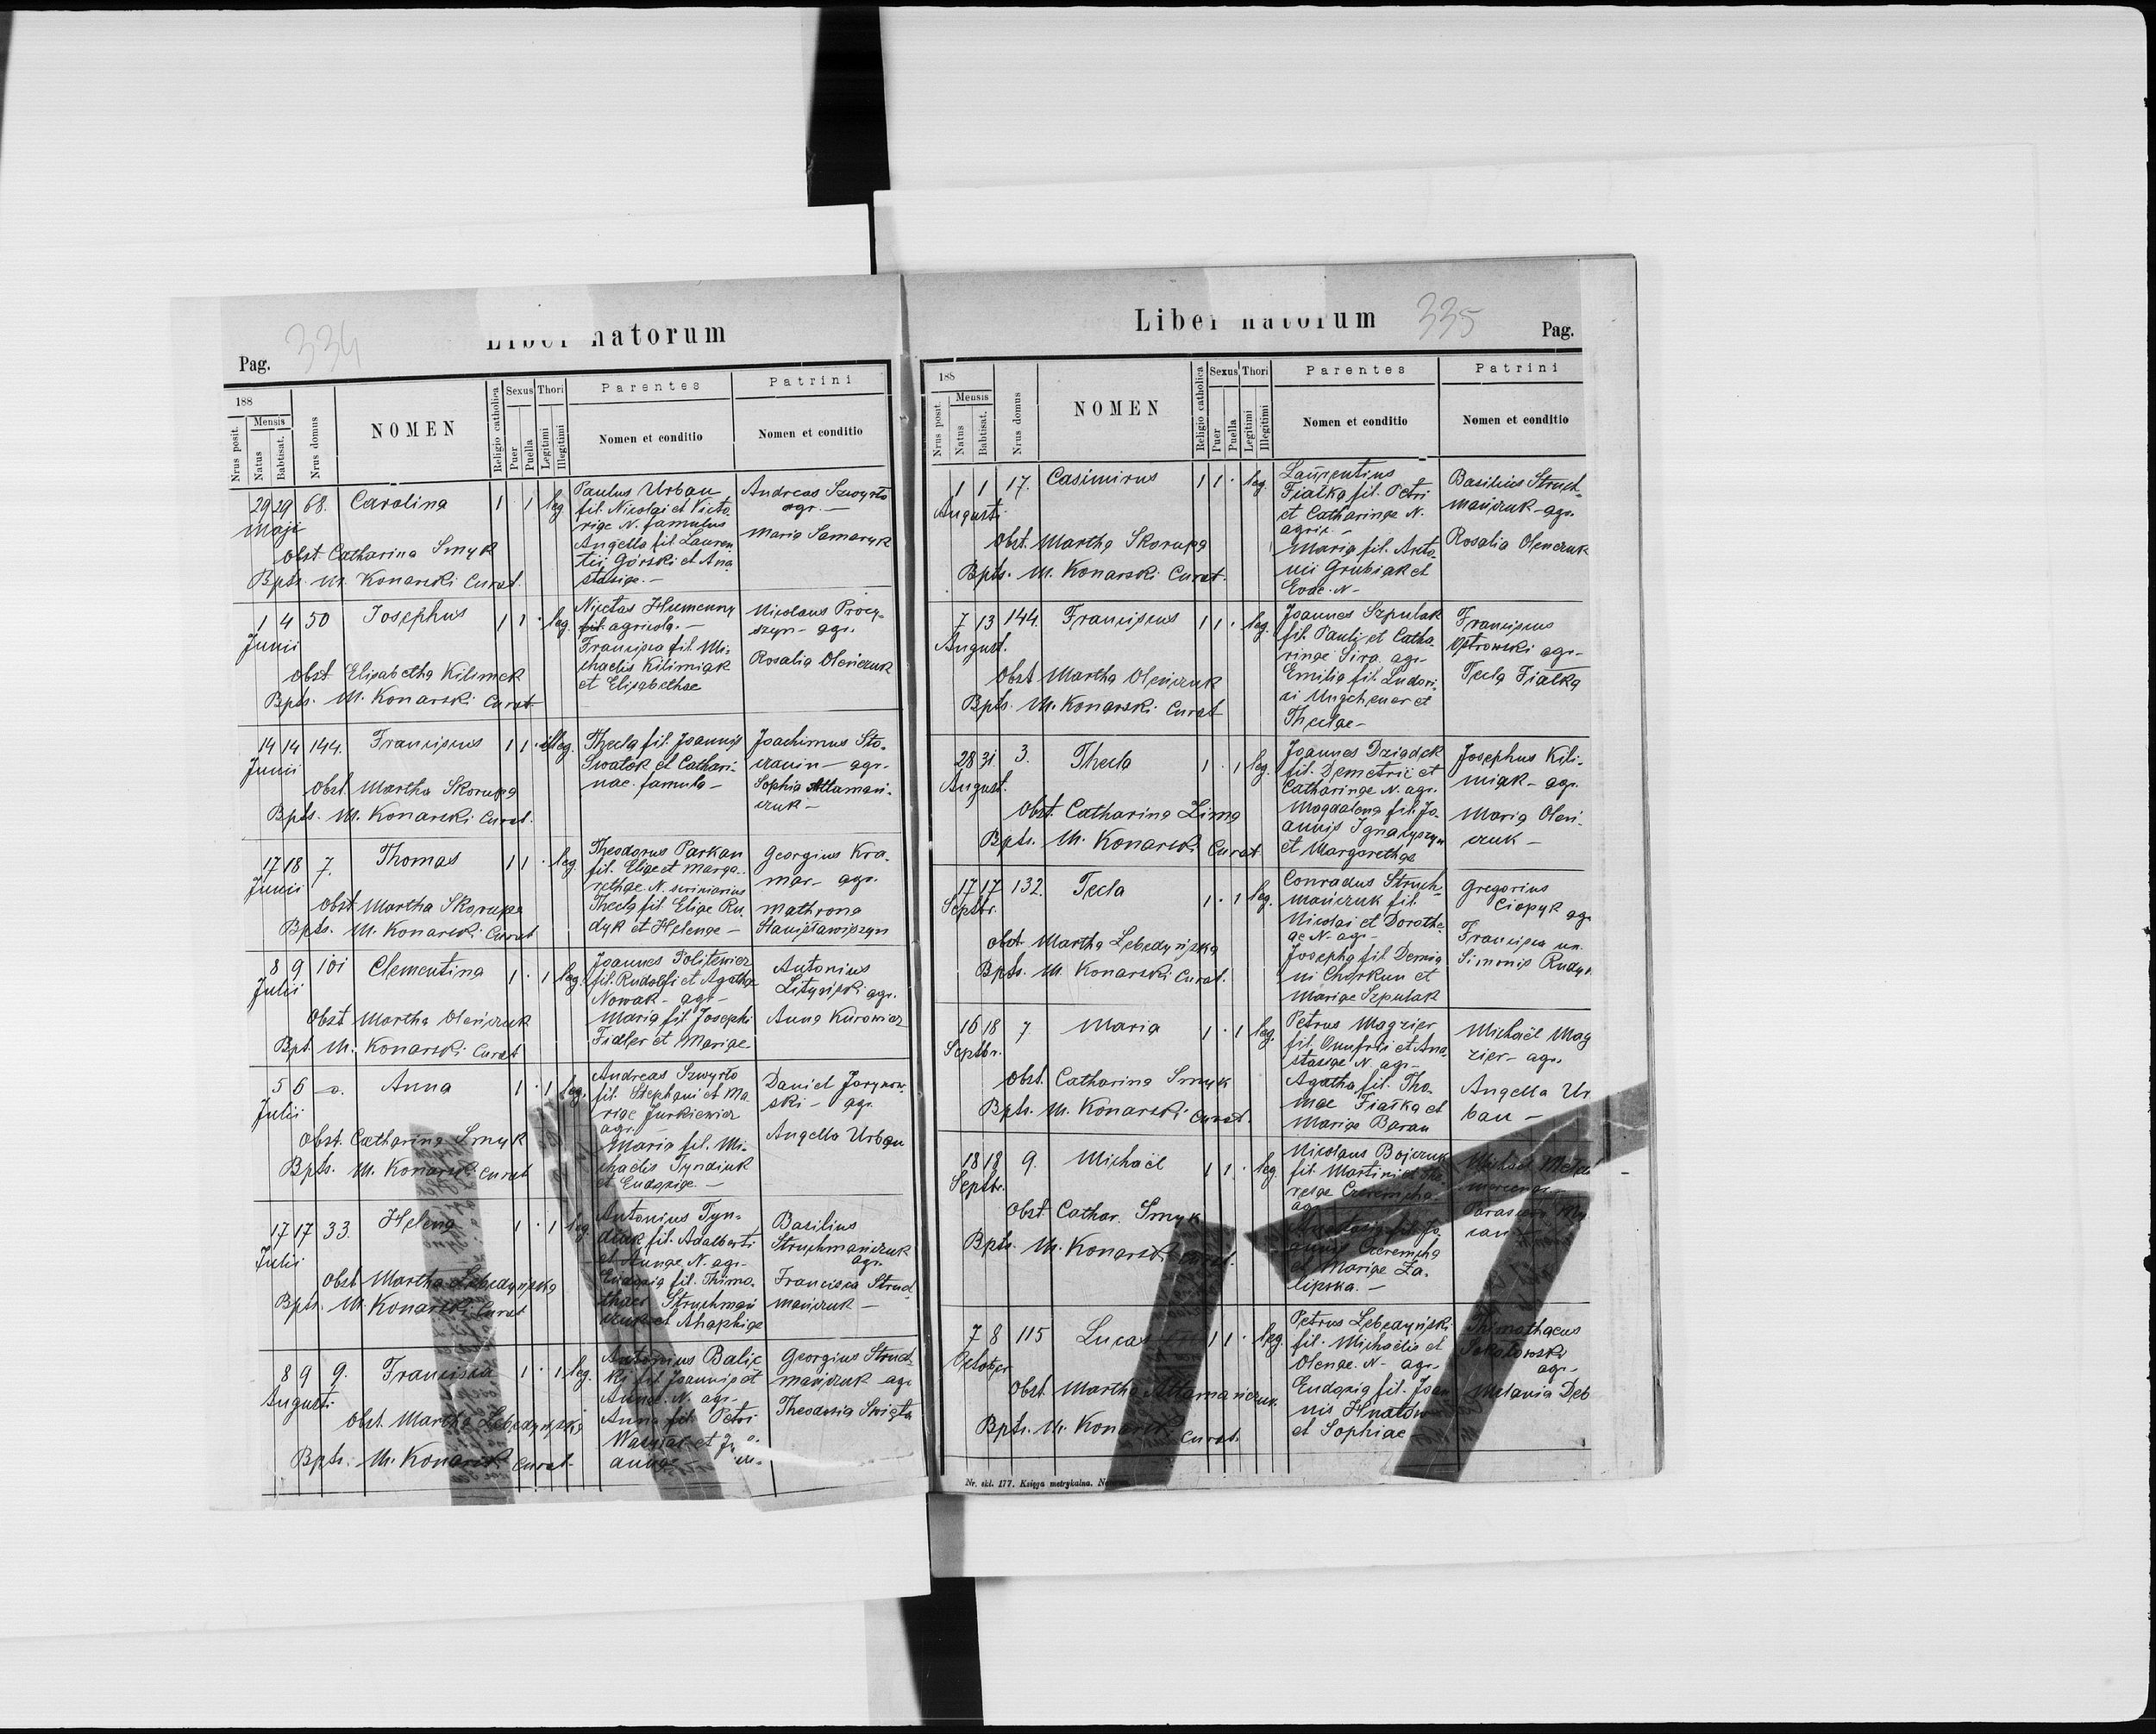 334
Liber natorum
Pag.
188
Nrus posit.
Mensis
Natus
Babtisat.
Nrus domus
NOMEN
Religio catholica
Sexus
Puer
Puella
Thori
Legitimi
Illegitimi
Parentes
Nomen et conditio
Patrini
Nomen et conditio
29 29 68. Carolina 1 · 1 leg.
Maji
Obst Catharina Smyk
Bpts. M. Konarski Curat.
Paulus Urban
fil. Nicolai et Victo-
riae N. famulus
Angella fil. Lauren
tii Górski et Ana
stasiae. -
Andreas Szwyrło
agr. -
Maria Samaryk
1 4 50 Josephus 1 1 · leg.
Junii
Obst Elisabetha Kilimek
Bpts. M. Konarski Curat
Nicetas Humenny
fil. agricola. -
Francisca fil. Mi-
chaelis Kilimiak
et Elisabethae
Nicolaus Procy-
szyn - agr.
Rosalia Oleńczuk
14 14 144. Franciscus 1 1 · illeg.
Junii
Obst. Martha Skorupa
Bpts. M. Konarski Curat.
Thecla fil. Joannis
Swatek et Cathari-
nae famula -
Joachimus Sto-
- agr.
Sophia Attamań-
czuk -
17 18 7. Thomas 1 1 · leg
Junii
Obst Martha Skorupa
Bpts. M. Konarski Curat
Theodorus Parkan
fil. Eliae et Marga-
rethae N. scriniarius
Thecla fil. Eliae Ru-
dyk et Helenae -
Georgius Kra-
mar - agr.
Mathrona
Stanisławiszyn
8 9 101 Clementina 1 · 1 leg.
Julii
Obst Martha Oleńczuk
Bpt. M. Konarski Curat
Joannes Politewicz
fil. Rudolfi et Agatha
Nowak - agr -
Maria fil. Josephi
Fidler et Mariae
Antonius
Lityński agr.
Anna Kurowicz
5 6 Anna 1 · 1 leg.
Julii
Obst. Catharina Smyk
Bpts. M. Konarski Curat
Andreas Szwyrło
fil. Stephani et Ma
riae Jurkiewicz
agr. -
Maria fil. Mi-
chaelis Tyndiuk
et Eudoxiae. -
Daniel Jarynow-
ski - agr.
Angella Urban
17 17 33. Helena 1 · 1 leg
Julii
Obst Martha Lebedyńska
Bpts. M. Konarski Curat
Antonius Tyn-
diuk fil. Adalberti
et Annae N. agr. -
Eudoxia fil. Thimo-
thaei Struchmań
czuk et Ahaphiae
Basilius
Struchmańczuk
agr.
Francisca Struch
mańczuk -
8 9 9. Francisca 1 · 1 leg.
Augusti
Obst. Martha Lebedyńska
Bpts. M. Konarski Curat
Antonius Balic
ki fil. Joannis et
Annae N. agr -
Anna fil. Petri
et
annae
Georgius Struch-
mańczuk agr
Theodosia Swięta
Liber natorum
335
Pag.
188
Nrus posit.
Mensis
Natus
Babtisat.
Nrus domus
NOMEN
Religio catholica
Sexus
Puer
Puella
Thori
Legitimi
Illegitimi
Parentes
Nomen et conditio
Patrini
Nomen et conditio
1 1 17. Casimirus 1 1 · leg.
Augusti
Obst. Martha Skorupa
Bpts. M. Konarski Curat.
Laurentius
Fiałka fil. Petri
et Catharinae N.
agric. -
Maria fil. Anto-
nii Grubiak et
Evae. N -
Basilius Struch-
mańczuk - agr.
Rosalia Oleńczuk
7 13 144. Franciscus 1 1 · leg.
August.
Obst Martha Oleńczuk
Bpts. M. Konarski Curat
Joannes Szpulak
fil. Pauli et Catha-
rinae Sira. agr -
Emilia fil. Ludovi-
ci Ungeheuer et
Theclae -
Franciscus
Ostrowski agr -
Tecla Fiałka
28 31. 3. Thecla 1 · 1 leg.
August.
Obst. Catharina Zima
Bpts. M. Konarski Curat
Joannes Dziadek
fil. Demetrii et
Catharinae N. agr.
Magdalena fil. Jo-
annis Ignacyszyn
et Margarethae
Josephus Kili-
miak - agr.
Maria Oleń-
czuk -
17 17 132. Tecla 1 · 1 leg.
Septbr.
Obst. Martha Lebedyńska
Bpts. M. Konarski Curat.
Conradus Struch-
mańczuk fil.
Nicolai et Dorothe
ae N. agr -
Josepha fil. Demia
ni Chorkun et
Mariae Szpulak
Gregorius
Ciopyk agr
Francisca ux.
Simonis Rudyk
16 18 7 Maria 1 · 1 leg.
Septbr.
Obst. Catharina Smyk
Bpts. M. Konarski Curat.
Petrus Magzier
fil. Onufrii et Ana-
stasiae N. agr -
Agatha fil. Tho-
mae Fiałka et
Mariae Baran
Michaël Mag
zier - agr.
Angella Ur
ban -
18 18 9. Michaël 1 1 · leg.
Septbr.
Obst Cathar. Smyk
Bpts. M. Konarski Curat.
Nicolaus Bojczuk
fil. Martini et The-
resae Czeremcha
ag
Anastasia fil. Jo-
annis Czeremcha
et Mariae Za-
lipska. -
Michael
7 8 115 Lucas 1 1 · leg.
October
Obst. Martha Attamańczuk
Bpts. M. Konarski Curat.
Petrus Lebedyński
fil. Michaelis et
Olenae. N - agr -
Eudoxia fil. Joan
nis Hnatów
et Sophiae -
Thimothaeus
Sokołowski
agr -
Melania Deb
Nr. skl. 177. Księga metrykalna.